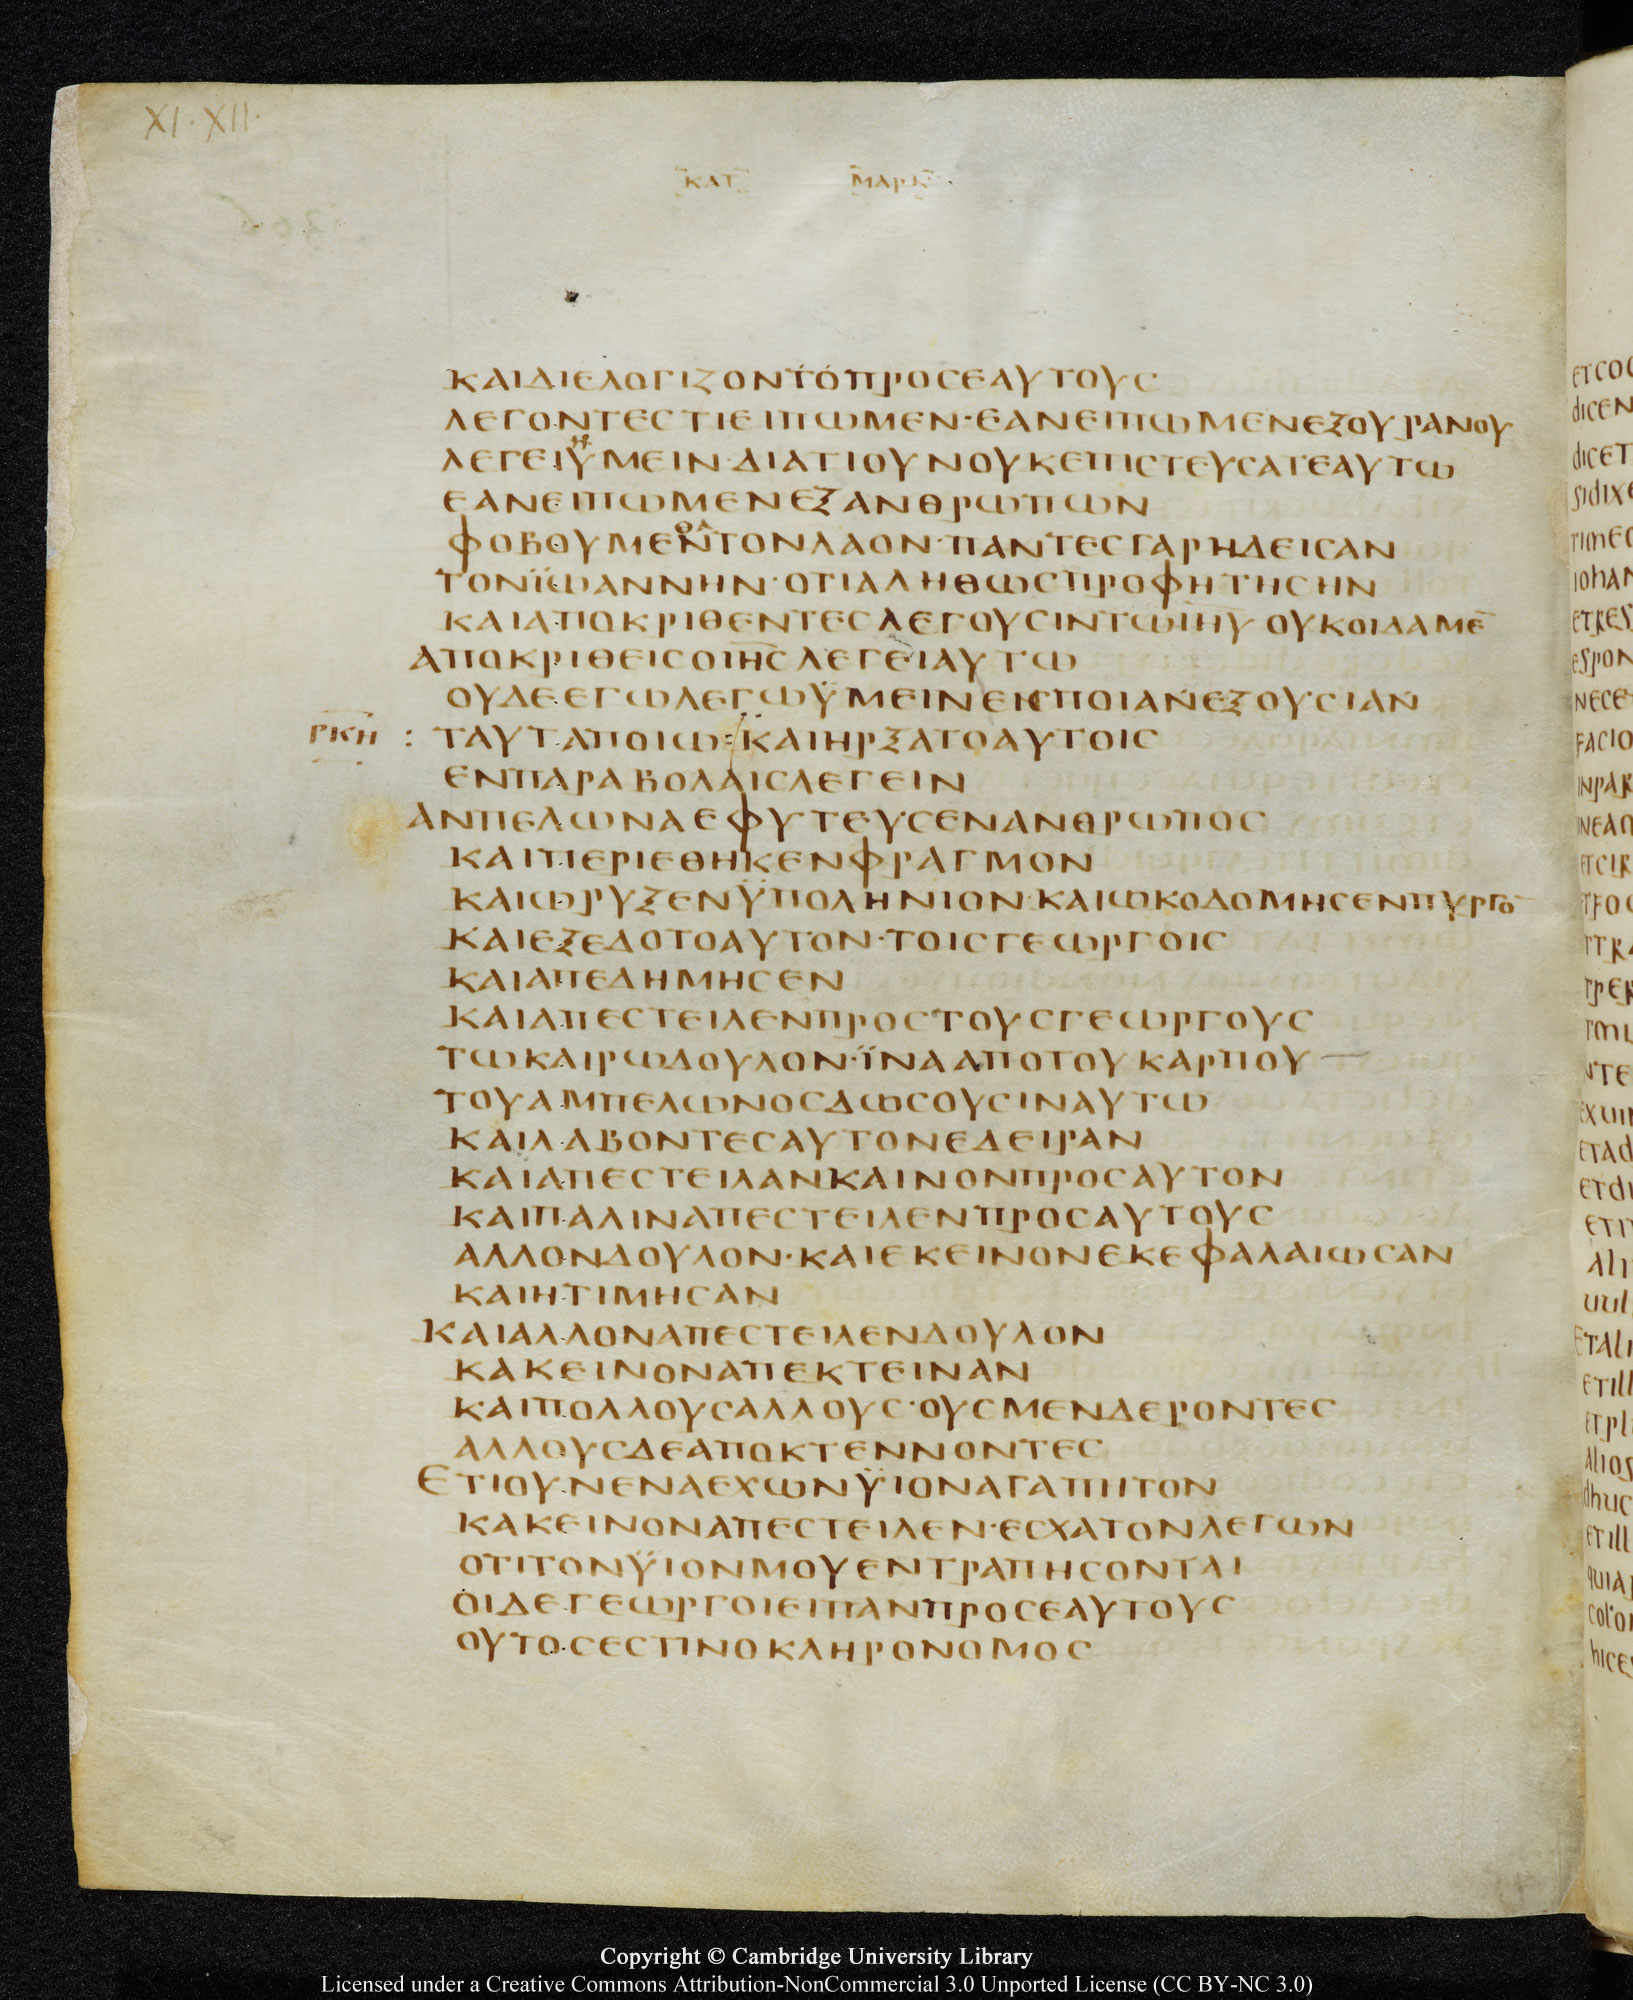 XI·XII·
ΚΑΤ ΜΑΡΚ
ΚΑΙΔΙΕΛΟΓΙΖΟΝΤΟΠΡΟСΕΑΥΤΟΥС
ΛΕΓΟΝΤΕСΤΙΕΙΠΩΜΕΝ·ΕΑΝΕΙΠΩΜΕΝΕΞΟΥΡΑΝΟΥ
ΛΕΓΕΙΥΜΕΙΝ·ΔΙΑΤΙΟΥΝΟΥΚΕΠΙСΤΕΥСΑΤΕΑΥΤΩ
ΕΑΝΕΙΠΩΜΕΝΕΞΑΝΘΡΩΠΩΝ
ΦΟΒΟΥΜΕΝΤΟΝΛΑΟΝ·ΠΑΝΤΕСΓΑΡΗΔΕΙСΑΝ
ΤΟΝΪΩΑΝΝΗΝ·ΟΤΙΑΛΗΘΩСΠΡΟΦΗΤΗСΗΝ
ΚΑΙΑΠΟΚΡΙΘΕΝΤΕСΛΕΓΟΥСΙΝΤΩΙΗΥ ΟΥΚΟΙΔΑΜΕ̅
ΑΠΟΚΡΙΘΕΙСΟΙΗСΛΕΓΕΙΑΥΤΩ
ΟΥΔΕΕΓΩΛΕΓΩΫΜΕΙΝΕΝΠΟΙΑΝΕΞΟΥСΙΑΝ
ΡΚΗ : ΤΑΥΤΑΠΟΙΩ:ΚΑΙΗΡΞΑΤΟΑΥΤΟΙС
ΕΝΠΑΡΑΒΟΛΑΙСΛΕΓΕΙΝ
ΑΝΠΕΛΩΝΑΕΦΥΤΕΥСΕΝΑΝΘΡΩΠΟС
ΚΑΙΠΕΡΙΕΘΗΚΕΝΦΡΑΓΜΟΝ
ΚΑΙΩΡΥΞΕΝΫΠΟΛΗΝΙΟΝ·ΚΑΙΩΚΟΔΟΜΗСΕΝΠΥΡΓΟ̅
ΚΑΙΕΞΕΔΟΤΟΑΥΤΟΝ·ΤΟΙСΓΕΩΡΓΟΙС
ΚΑΙΑΠΕΔΗΜΗСΕΝ
ΚΑΙΑΠΕСΤΕΙΛΕΝΠΡΟСΤΟΥСΓΕΩΡΓΟΥС
ΤΩΚΑΙΡΩΔΟΥΛΟΝ·ΪΝΑΑΠΟΤΟΥΚΑΡΠΟΥ
ΤΟΥΑΜΠΕΛΩΝΟСΔΩСΟΥСΙΝΑΥΤΩ
ΚΑΙΛΑΒΟΝΤΕСΑΥΤΟΝΕΔΕΙΡΑΝ
ΚΑΙΑΠΕСΤΕΙΛΑΝΚΑΙΝΟΝΠΡΟСΑΥΤΟΝ
ΚΑΙΠΑΛΙΝΑΠΕСΤΕΙΛΕΝΠΡΟСΑΥΤΟΥС
ΑΛΛΟΝΔΟΥΛΟΝ·ΚΑΙΕΚΕΙΝΟΝΕΚΕΦΑΛΑΙΩСΑΝ
ΚΑΙΗΤΙΜΗСΑΝ
ΚΑΙΑΛΛΟΝΑΠΕСΤΕΙΛΕΝΔΟΥΛΟΝ
ΚΑΚΕΙΝΟΝΑΠΕΚΤΕΙΝΑΝ
ΚΑΙΠΟΛΛΟΥСΑΛΛΟΥС·ΟΥСΜΕΝΔΕΡΟΝΤΕС
ΑΛΛΟΥСΔΕΑΠΟΚΤΕΝΝΟΝΤΕС
ΕΤΙΟΥΝΕΝΑΕΧΩΝΫΙΟΝΑΓΑΠΗΤΟΝ
ΚΑΚΕΙΝΟΝΑΠΕСΤΕΙΛΕΝ·ΕСΧΑΤΟΝΛΕΓΩΝ
ΟΤΙΤΟΝΫΙΟΝΜΟΥΕΝΤΡΑΠΗСΟΝΤΑΙ
ΟΙΔΕΓΕΩΡΓΟΙΕΙΠΑΝΠΡΟСΕΑΥΤΟΥС
ΟΥΤΟСΕСΤΙΝΟΚΛΗΡΟΝΟΜΟС
Copyright © Cambridge University Library
Licensed under a Creative Commons Attribution-NonCommercial 3.0 Unported License (CC BY-NC 3.0)